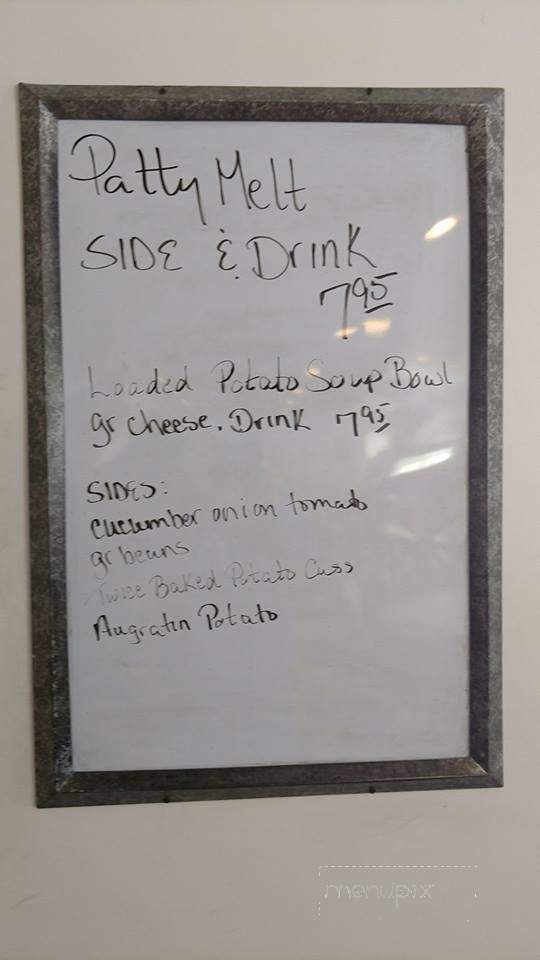 Patty Melt
SIDE & Drink
7 95
Loaded Potato Soup Bowl
gr cheese. Drink 7 95
SIDES:
cucumber onion tomato
gr beans
Twice Baked Potato Cass
Augratin Potato
menupix